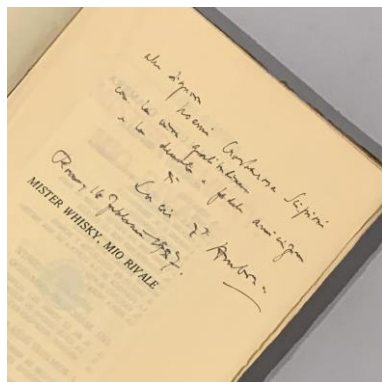 alla signora
Noemi Carbarosa Scipioni
con la viva gratitudine
e la devota e fedele amicizia
di
Lucio d'Ambra
Roma, 16 febbraio 1937.
MISTER WHISKY, MIO RIVALE